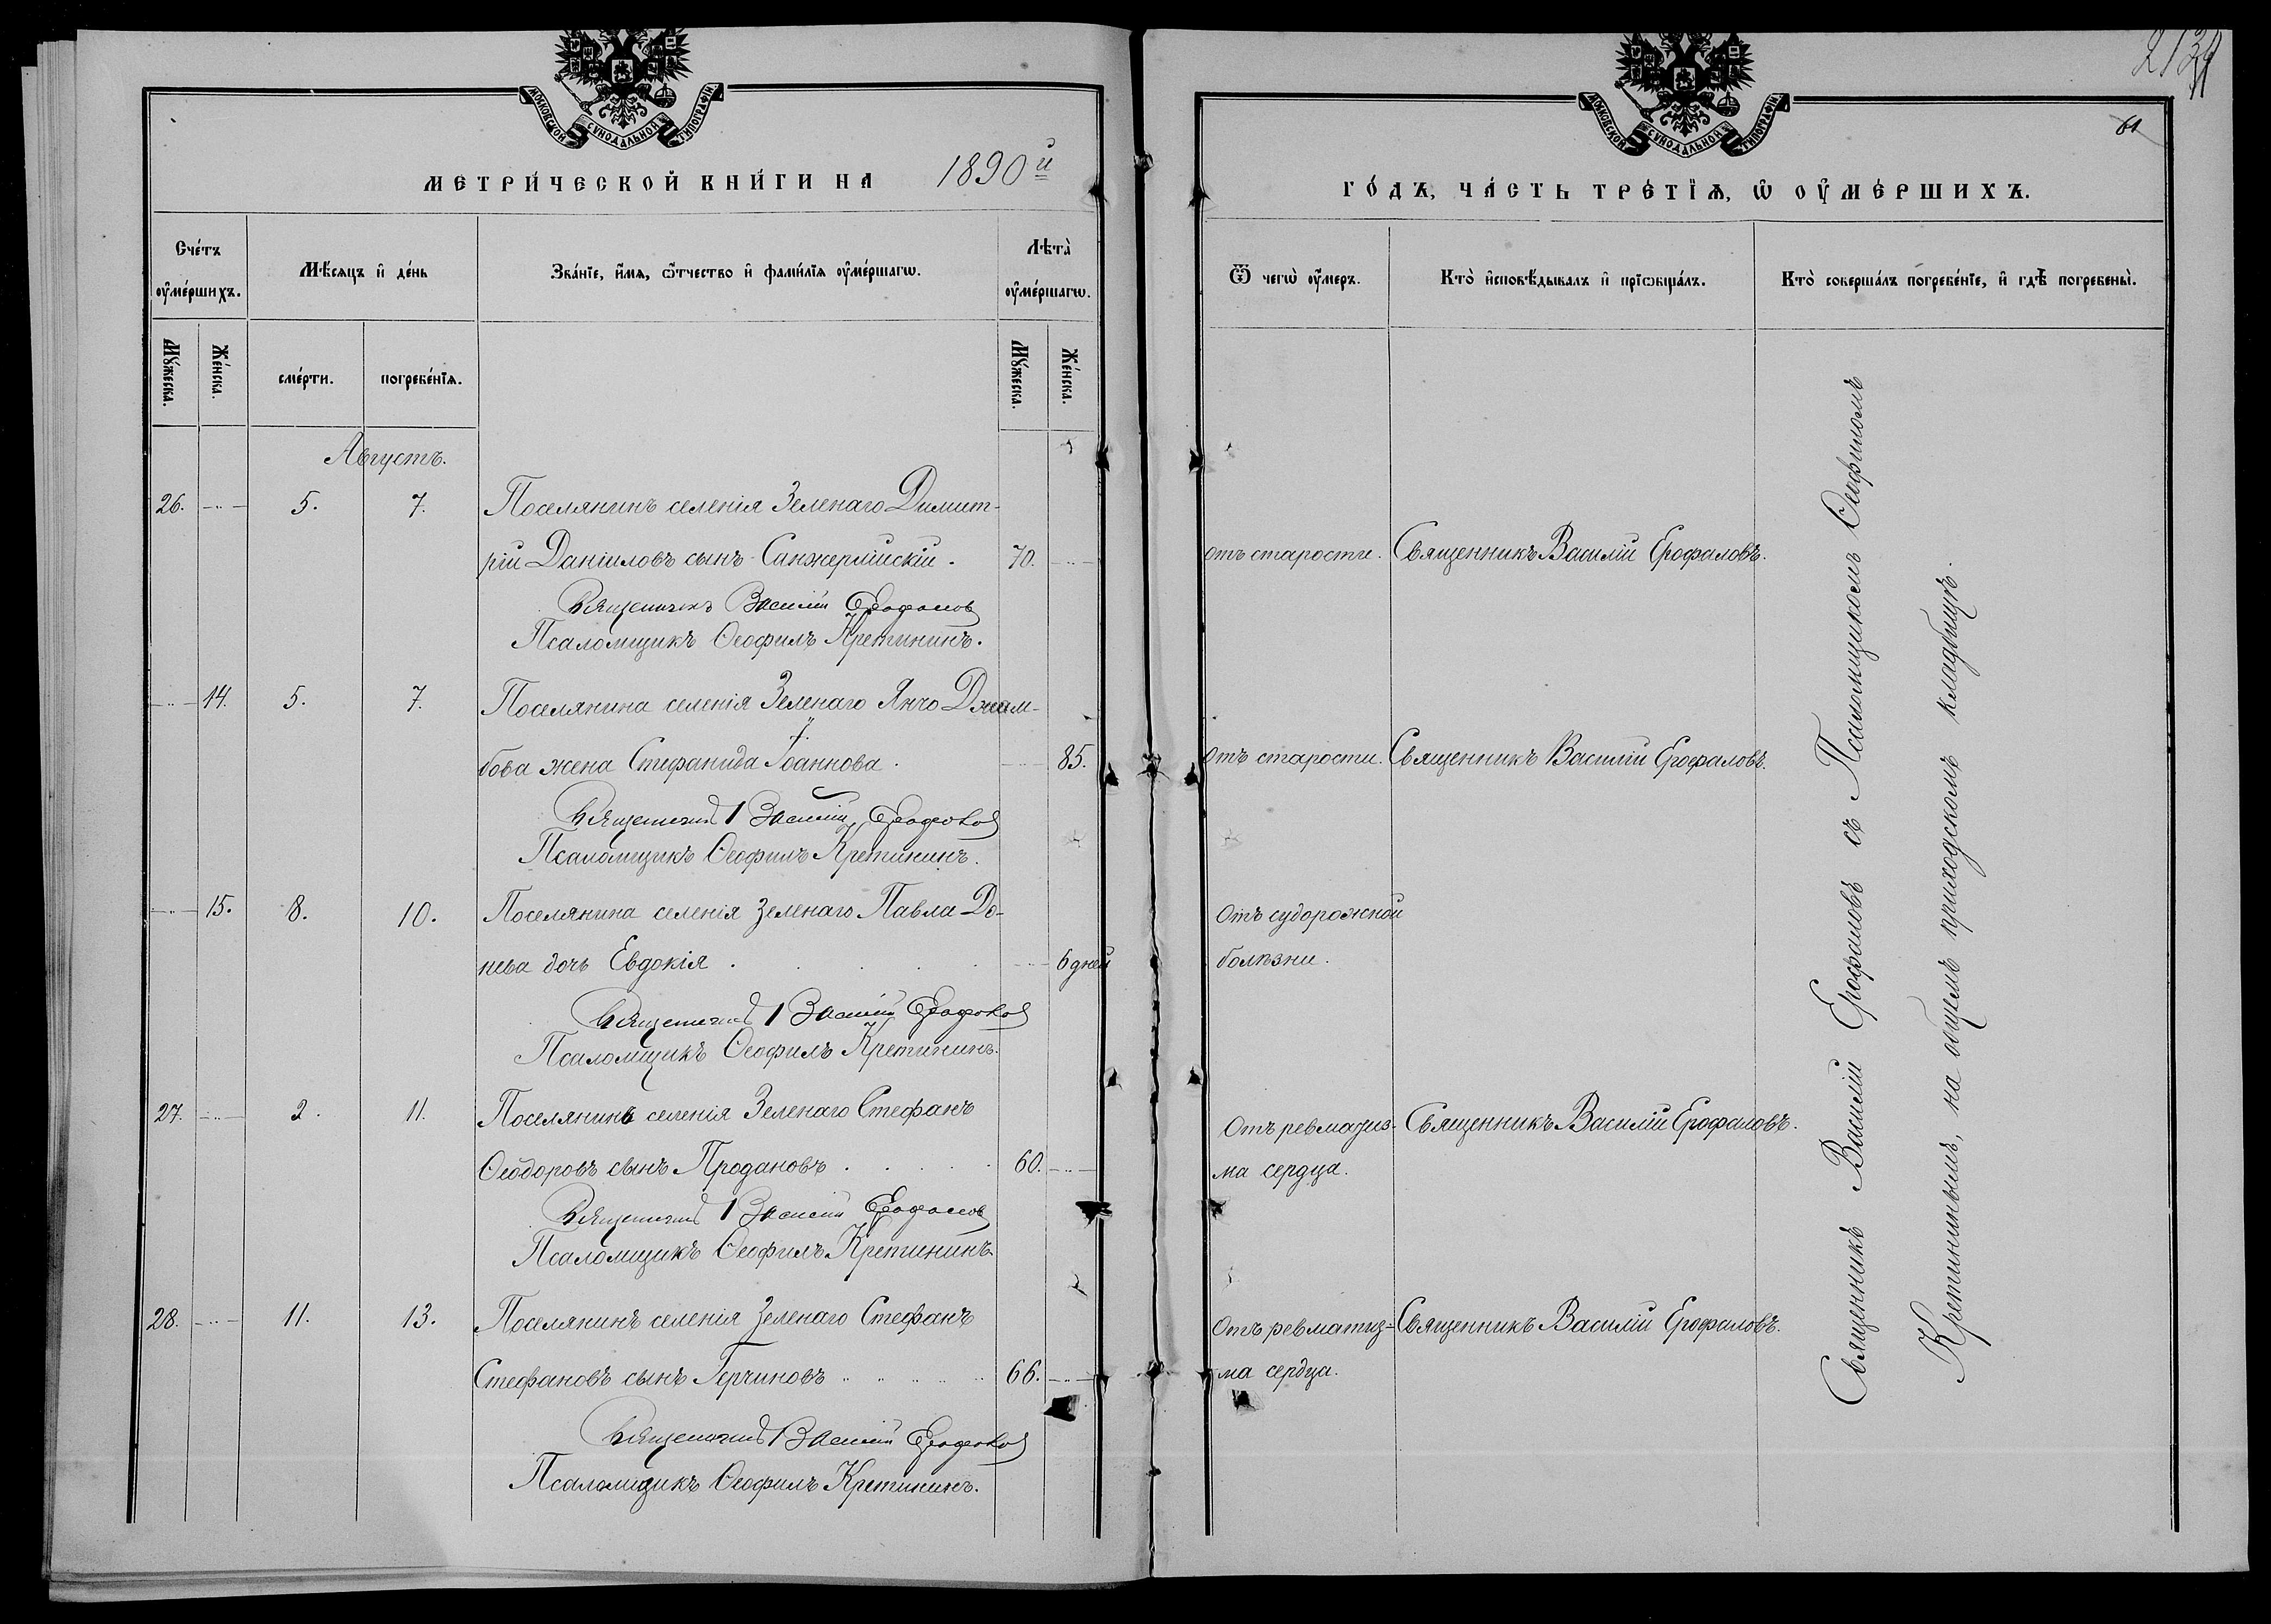 МОСКОВСКОЙ СѴНОДАЛЬНОЙ ТИПОГРАФІИ
МЕТРИ́ЧЕСКОЙ КНИ́ГИ НА 1890й
Сче́тъ оу҆ме́ршихъ.
Мѣ́сяцъ и҆ де́нь
Зва́нїе, и҆́мѧ, ѻ҆́тчество и҆ фами́лїѧ оу҆ме́ршагѡ.
Лѣта̀ оу҆ме́ршагѡ.
Мꙋ́жеска.
Же́нска.
сме́рти.
погребе́нїѧ.
Мꙋ́жеска.
Же́нска.
Августъ.
26. 5. 7. Поселянинъ селенія Зеленаго Димит-
рій Даніиловъ сынъ Санжерлійскій. 70.
Священникъ Василій Ерофаловъ
Псаломщикъ Ѳеофилъ Кретининъ.
14. 5. 7. Поселянина селенія Зеленаго Янчо Джам-
бова жена Стефанида Іоаннова. 85.
Священникъ Василій Ерофаловъ
Псаломщикъ Ѳеофилъ Кретининъ.
15. 8. 10. Поселянина селенія Зеленаго Павла До-
нева дочь Евдокія. 6 дней
Священникъ Василій Ерофаловъ
Псаломщикъ Ѳеофилъ Кретининъ.
27. 2. 11. Поселянинъ селенія Зеленаго Стефанъ
Ѳеодоровъ сынъ Продановъ. 60.
Священникъ Василій Ерофаловъ
Псаломщикъ Ѳеофилъ Кретининъ.
28. 11. 13. Поселянинъ селенія Зеленаго Стефанъ
Стефановъ сынъ Герчиновъ 66.
Священникъ Василій Ерофаловъ
Псаломщикъ Ѳеофилъ Кретининъ.
61
МОСКОВСКОЙ СѴНОДАЛЬНОЙ ТИПОГРАФІИ
ГО́ДЪ, ЧА́СТЬ ТРЕ́ТЇѦ, Ѡ҆ ОУ҆МЕ́РШИХЪ.
Ѿ чегѡ̀ оу҆́меръ.
Кто̀ и҆сповѣ́дывалъ и҆ прїѡбща́лъ.
Кто̀ соверша́лъ погребе́нїе, и҆ гдѣ̀ погребены̀.
отъ старости. Священникъ Василій Ерофаловъ.
отъ старости. Священникъ Василій Ерофаловъ.
Отъ судорожной
болѣзни.
Отъ ревматиз- Священникъ Василій Ерофаловъ.
ма сердца.
Отъ ревматиз- Священникъ Василій Ерофаловъ.
ма сердца.
Священникъ Василій Ерофаловъ съ Псаломщикомъ Ѳеофиломъ
Кретининымъ, на общемъ приходскомъ кладбищѣ.